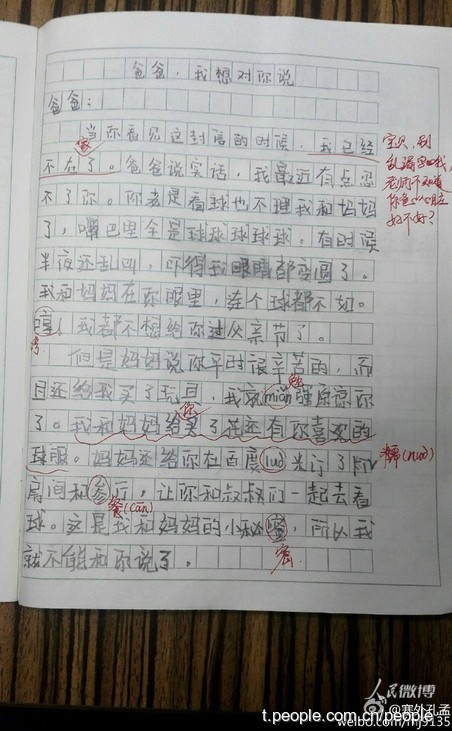 爸爸，我想对你说
爸爸：
当你看见这封信的时候，我已经
不在了。爸爸说实话，我最近有点忍
不了你。你老是看球也不理我和妈妈
了，嘴巴里全是球球球球球。有时候
半夜还乱叫，吓得我眼睛都变圆了。
我和妈妈在你眼里，连个球都不如。
我都不想给你过父亲节了。
但是妈妈说你平时很辛苦的，而
且还给我买了玩具，我就mian强原谅你
勉
了。我和妈妈给买了 还有你喜欢的
你
球服。妈妈还给你在百度luo米订了
糯(nuo)
房间和参厅，让你和叔叔们一起去看
餐(can)
球。这是我和妈妈的小秘 ，所以我
密
就不能和你说了。
宝贝，别
老师不知道
好不好？
人民微博
@塞外孔孟
t.people.com.cn/people
weibo.com/mj9135